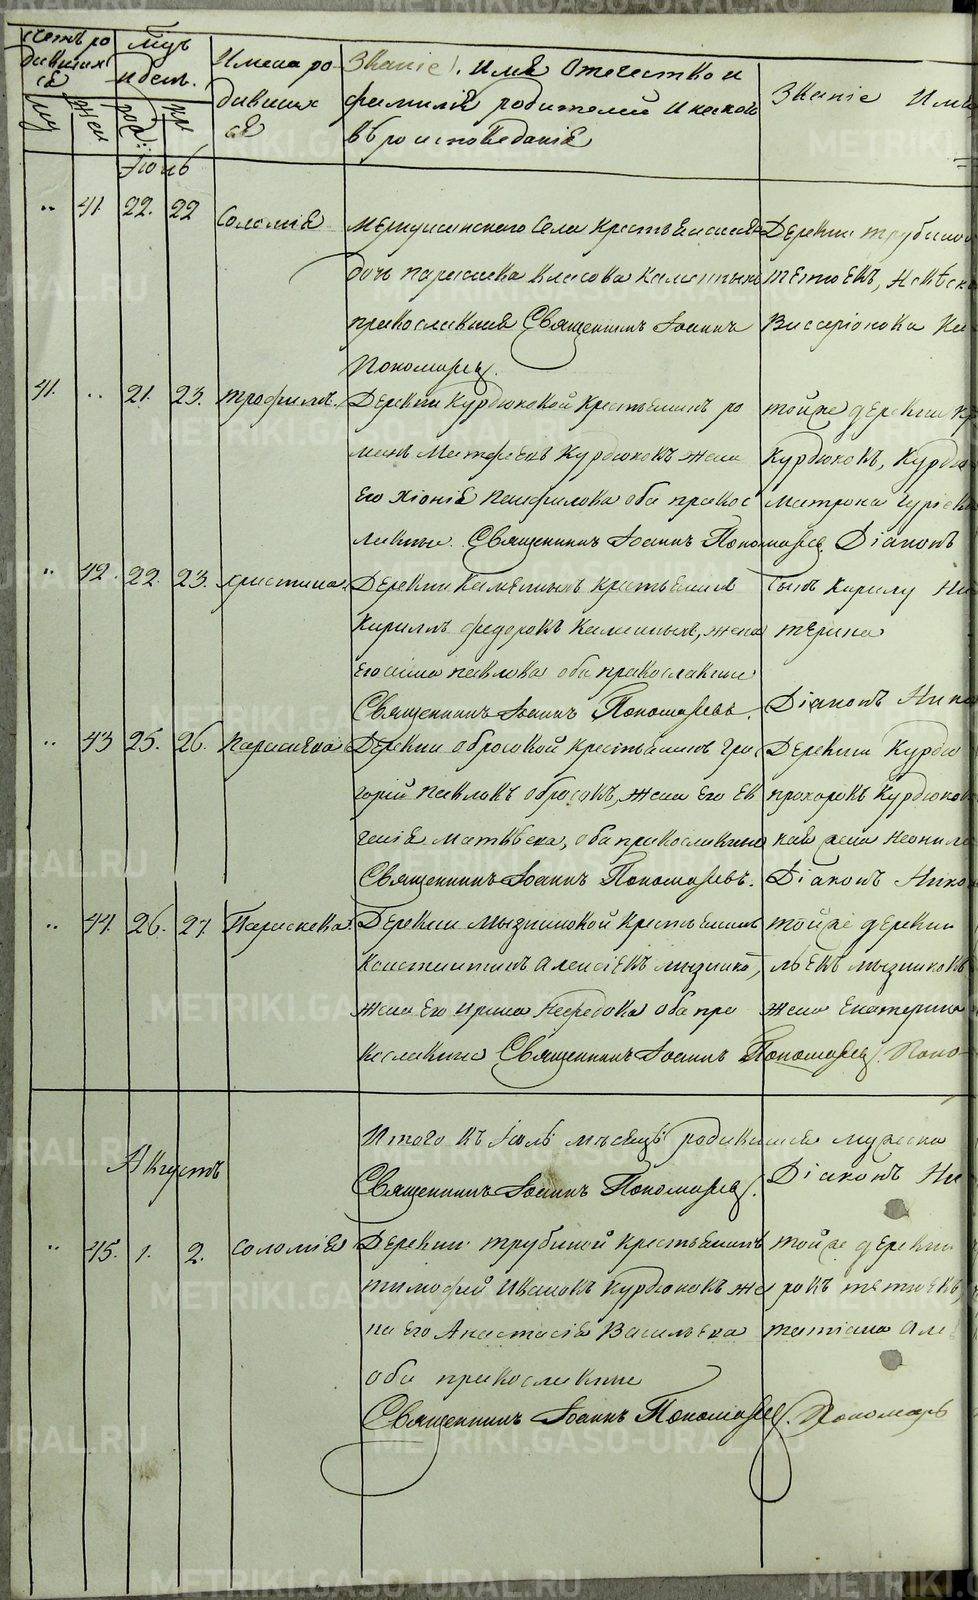 METRIKI.GASO-URAL.RU
Счетъ родившихся
муж.
жен.
Мцъ и день.
рож.
кр.
Имена родившихся
Званіе, Имя Отечество и
фамилія родителей и какого
вѣроисповѣданія
Званіе Имя
Іюль
„ 41. 22. 22 Соломія
Меркушинскаго Села крестьянская
дочь Параскева Власова
православная Священникъ Іоаннъ
Пономаревъ.
Деревни Трубиной
Висаріонова
41. „ 21. 23. Трофимъ.
Деревни Курдюковой крестьянинъ Ро
манъ Матфеевъ Курдюковъ жена
его Хіонія Панфилова оба правос
лавные. Священникъ Іоаннъ Пономаревъ. Діаконъ
той же деревни кр
Курдюковъ, Курдю
Матрона Гуріева
„ 42. 22. 23. Христина.
Деревни крестьянинъ
Кириллъ Федоровъ жена
его Анна Павлова оба православные
Священникъ Іоаннъ Пономаревъ.
сынъ
терина
Діаконъ Ник
„ 43 25. 26. Параскева
Деревни Обросовой крестьянинъ Гри
горій Павловъ Обросовъ, жена его Ев
генія Матвѣева, оба православные
Священникъ Іоаннъ Пономаревъ.
Деревни Курдю
Прохоровъ Курдюков
кая жена Неонила
Діаконъ Нико
„ 44. 26. 27. Параскева.
Деревни Мызниковой крестьянинъ
Константинъ Алексіевъ Мызнико,
жена его Ирина Нефедова оба пра
вославные Священникъ Іоаннъ Пономаревъ. Поно-
той же деревни
льевъ Мызниковъ
жена Екатерина
Итого въ Іюлѣ мѣсяцѣ родившихся мужеска
Священникъ Іоаннъ Пономаревъ. Діаконъ Ни
Августъ
„ 45. 1. 2. Соломія
Деревни Трубиной крестьянинъ
Тимофей Ивановъ Курдюковъ же
на его Анастасія Васильева
оба православные
Священникъ Іоаннъ Пономаревъ. Пономарь
той же деревни
ровъ
Татіана Але